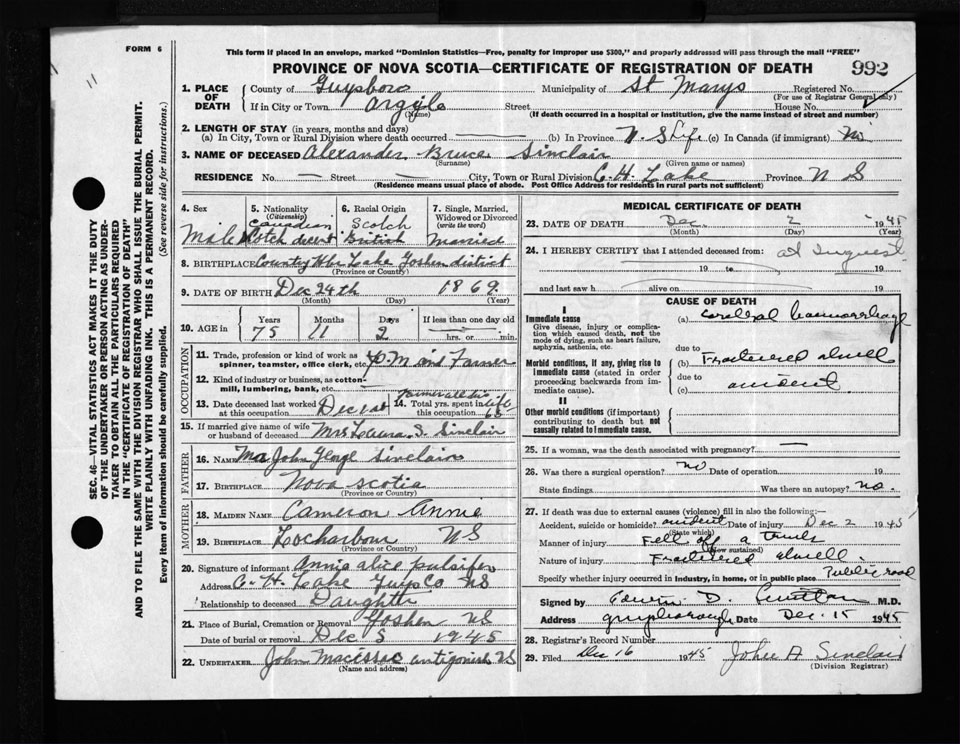 FORM 6
This form if placed in an envelope, marked "Dominion Statistics—Free, penalty for improper use $300," and properly addressed will pass through the mail "FREE"
PROVINCE OF NOVA SCOTIA—CERTIFICATE OF REGISTRATION OF DEATH 992
11
SEC. 46—VITAL STATISTICS ACT MAKES IT THE DUTY
OF THE UNDERTAKER OR PERSON ACTING AS UNDER-
TAKER TO OBTAIN ALL THE PARTICULARS REQUIRED
IN THE "CERTIFICATE OF REGISTRATION OF DEATH"
AND TO FILE THE SAME WITH THE DIVISION REGISTRAR WHO SHALL ISSUE THE BURIAL PERMIT.
WRITE PLAINLY WITH UNFADING INK. THIS IS A PERMANENT RECORD.
Every item of information should be carefully supplied. (See reverse side for instructions.)
1. PLACE OF DEATH County of Guysboro Municipality of St Marys Registered No.
(For use of Registrar General only)
If in City or Town Argyle Street House No.
(Name) (If death occurred in a hospital or institution, give the name instead of street and number)
2. LENGTH OF STAY (in years, months and days)
(a) In City, Town or Rural Division where death occurred — (b) In Province N. S Life (c) In Canada (if immigrant) No
3. NAME OF DECEASED Alexander Bruce Sinclair
(Surname) (Given name or names)
RESIDENCE No. — Street — City, Town or Rural Division C. H. Lake Province N S
(Residence means usual place of abode. Post Office Address for residents in rural parts not sufficient)
4. Sex Male
5. Nationality (Citizenship) Canadian Scotch decent
6. Racial Origin Scotch British
7. Single, Married, Widowed or Divorced (write the word) Married
8. BIRTHPLACE Country Hbr Lake Goshen district
(Province or Country)
9. DATE OF BIRTH Dec 24th 1869
(Month) (Day) (Year)
10. AGE in Years 75 Months 11 Days 2 If less than one day old
hrs. or min.
OCCUPATION
11. Trade, profession or kind of work as
spinner, teamster, office clerk, etc. P M and Farmer
12. Kind of industry or business, as cotton-
mill, lumbering, bank, etc. —
13. Date deceased last worked at this occupation Dec 1st 14. Total yrs. spent in this occupation Farmer all his life 65
15. If married give name of wife
or husband of deceased Mrs Laura S. Sinclair
FATHER
16. NAME Mr John George Sinclair
17. BIRTHPLACE Nova Scotia
(Province or Country)
MOTHER
18. MAIDEN NAME Cameron Annie
19. BIRTHPLACE Locharbour NS
(Province or Country)
20. Signature of informant Annie Alice Pulsifer
Address C. H. Lake Guys Co NS
Relationship to deceased Daughter
21. Place of Burial, Cremation or Removal Goshen NS
Date of burial or removal Dec 5 1945
22. UNDERTAKER John MacIsaac Antigonish NS
(Name and address)
MEDICAL CERTIFICATE OF DEATH
23. DATE OF DEATH Dec. 2 1945
(Month) (Day) (Year)
24. I HEREBY CERTIFY that I attended deceased from: at Inquest
19 to 19
and last saw h alive on 19
CAUSE OF DEATH
I
Immediate cause
Give disease, injury or complica-
tion which caused death, not the
mode of dying, such as heart failure,
asphyxia, asthenia, etc.
(a) cerebral haemorrhage
due to
Morbid conditions, if any, giving rise to
immediate cause (stated in order
proceeding backwards from im-
mediate cause).
(b) Fractured skull
due to
(c) accident
II
Other morbid conditions (if important)
contributing to death but not
causally related to immediate cause.
25. If a woman, was the death associated with pregnancy? —
26. Was there a surgical operation? no Date of operation 19
State findings Was there an autopsy? no.
27. If death was due to external causes (violence) fill in also the following:—
Accident, suicide or homicide? accident Date of injury Dec 2 1945
(State which)
Manner of injury Fell off a truck
(How sustained)
Nature of injury Fractured skull.
Specify whether injury occurred in industry, in home, or in public place Public road
Signed by D. M.D.
Address Guysborough Date Dec. 15 1945
28. Registrar's Record Number
29. Filed Dec 16 1945 John A Sinclair
(Division Registrar)